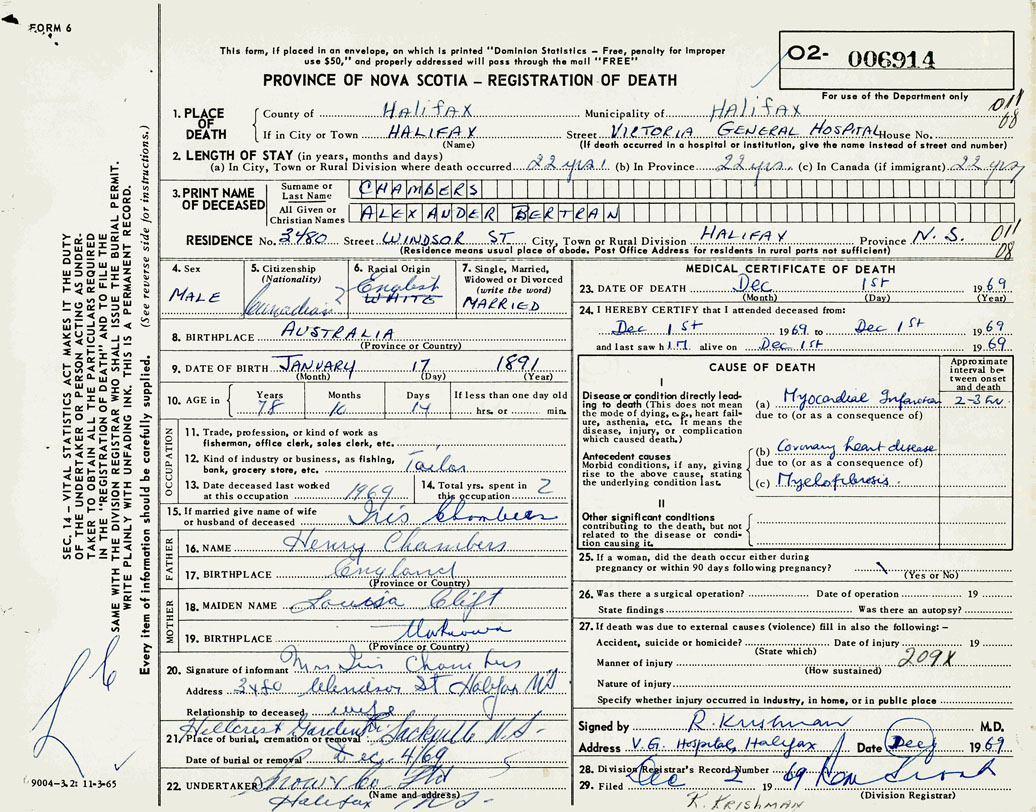 FORM 6
This form, if placed in an envelope, on which is printed "Dominion Statistics – Free, penalty for improper
use $50," and properly addressed will pass through the mail "FREE"
PROVINCE OF NOVA SCOTIA – REGISTRATION OF DEATH
02- 006914
For use of the Department only
SEC. 14 – VITAL STATISTICS ACT MAKES IT THE DUTY
OF THE UNDERTAKER OR PERSON ACTING AS UNDER-
TAKER TO OBTAIN ALL THE PARTICULARS REQUIRED
IN THE "REGISTRATION OF DEATH" AND TO FILE THE
SAME WITH THE DIVISION REGISTRAR WHO SHALL ISSUE THE BURIAL PERMIT.
WRITE PLAINLY WITH UNFADING INK. THIS IS A PERMANENT RECORD.
Every item of information should be carefully supplied. (See reverse side for instructions.)
1. PLACE OF DEATH
County of Halifax Municipality of Halifax 011
08
If in City or Town HALIFAX Street VICTORIA GENERAL HOSPITAL House No.
(Name) (If death occurred in a hospital or institution, give the name instead of street and number)
2. LENGTH OF STAY (in years, months and days)
(a) In City, Town or Rural Division where death occurred 22 yrs. (b) In Province 22 yrs. (c) In Canada (if immigrant) 22 yrs
3. PRINT NAME OF DECEASED
Surname or Last Name CHAMBERS
All Given or Christian Names ALEXANDER BERTRAN
RESIDENCE No. 3480 Street WINDSOR ST. City, Town or Rural Division HALIFAX Province N.S. 011
08
(Residence means usual place of abode. Post Office Address for residents in rural parts not sufficient)
4. Sex
MALE
5. Citizenship
(Nationality)
Canadian
6. Racial Origin
English
WHITE
7. Single, Married,
Widowed or Divorced
(write the word)
MARRIED
8. BIRTHPLACE AUSTRALIA
(Province or Country)
9. DATE OF BIRTH JANUARY 17 1891
(Month) (Day) (Year)
10. AGE in
Years 78
Months 10
Days 14
If less than one day old
hrs. or min.
OCCUPATION
11. Trade, profession, or kind of work as
fisherman, office clerk, sales clerk, etc.
12. Kind of industry or business, as fishing,
bank, grocery store, etc. Tailor
13. Date deceased last worked
at this occupation 1969
14. Total yrs. spent in
this occupation 2
15. If married give name of wife
or husband of deceased Iris Chambers
FATHER
16. NAME Henry Chambers
17. BIRTHPLACE England
(Province or Country)
MOTHER
18. MAIDEN NAME Louisa Clift
19. BIRTHPLACE Unknown
(Province or Country)
20. Signature of informant Mrs Iris Chambers
Address 3480 Windsor St Halifax NS
Relationship to deceased wife
Hillcrest Gardens Sackville N.S.
21. Place of burial, cremation or removal
Date of burial or removal Dec. 4/69
22. UNDERTAKER Snow & Co. Ltd
(Name and address)
Halifax N.S.
9004–3.2: 11-3-65
MEDICAL CERTIFICATE OF DEATH
23. DATE OF DEATH Dec 1st 1969
(Month) (Day) (Year)
24. I HEREBY CERTIFY that I attended deceased from:
Dec 1st 1969 to Dec 1st 1969
and last saw him alive on Dec 1st 1969
CAUSE OF DEATH
Approximate
interval be-
tween onset
and death
I
Disease or condition directly lead-
ing to death (This does not mean
the mode of dying, e.g., heart fail-
ure, asthenia, etc. It means the
disease, injury, or complication
which caused death.)
(a) Myocardial Infarction
due to (or as a consequence of)
Antecedent causes
Morbid conditions, if any, giving
rise to the above cause, stating
the underlying condition last.
(b) Coronary heart disease
due to (or as a consequence of)
(c) Myelofibrosis.
II
Other significant conditions
contributing to the death, but not
related to the disease or condi-
tion causing it.
25. If a woman, did the death occur either during
pregnancy or within 90 days following pregnancy?
(Yes or No)
26. Was there a surgical operation? Date of operation 19
State findings Was there an autopsy?
27. If death was due to external causes (violence) fill in also the following: –
Accident, suicide or homicide? Date of injury 19
(State which)
Manner of injury 209X
(How sustained)
Nature of injury
Specify whether injury occurred in industry, in home, or in public place
Signed by R. Krishman M.D.
Address V.G. Hospital, Halifax Date Dec 1969
28. Division Registrar's Record Number
29. Filed Dec 2 69
(Division Registrar)
K. KRISHMAN